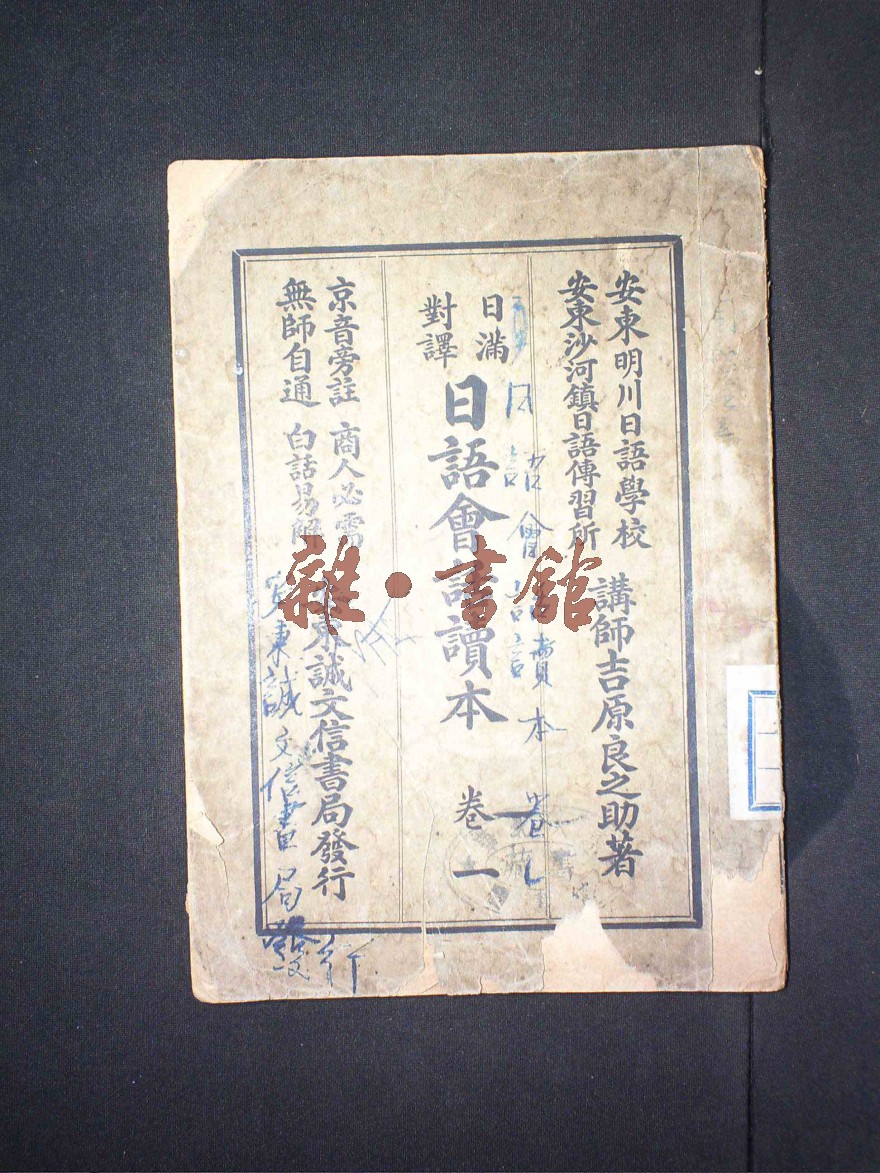 安東明川日語學校
安東沙河鎮日語傳習所
講師吉原良之助著
日滿
對譯
日語會話讀本 卷一
日語會話讀本 卷一
京音旁註 商人必需
無師自通 白話易解
安東誠文信書局發行
安東誠文信書局發行
雜·書館